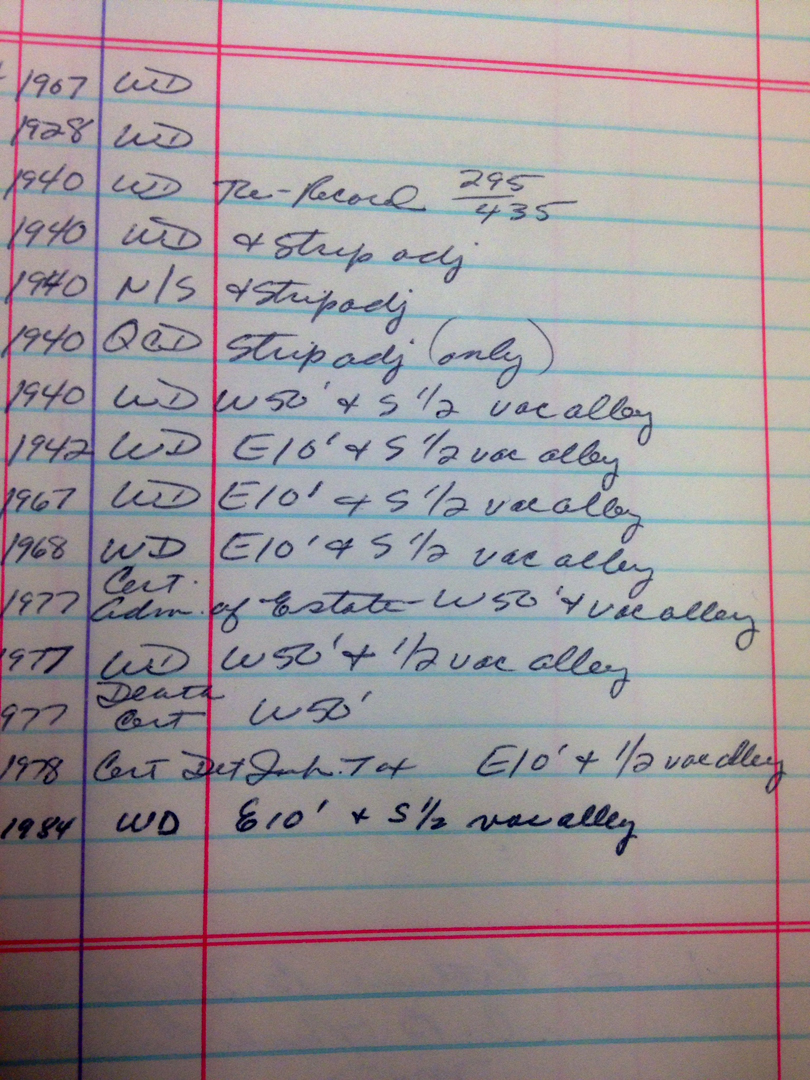 1967 WD
1928 WD
1940 WD Re-Record 295/435
1940 WD & Strip adj
1940 N/S & Strip adj
1940 QCD Strip adj (only)
1940 WD W 50' & S 1/2 vac alley
1942 WD E10' & S 1/2 vac alley
1967 WD E10' & S 1/2 vac alley
1968 WD E10' & S 1/2 vac alley
Cert.
1977 Adm. of Estate W 50' & vac alley
1977 WD W 50' & 1/2 vac alley
Death
977 Cert W 50'
1978 Cert Det Inh. Tax E10' & 1/2 vac alley
1984 WD E10' & S 1/2 vac alley